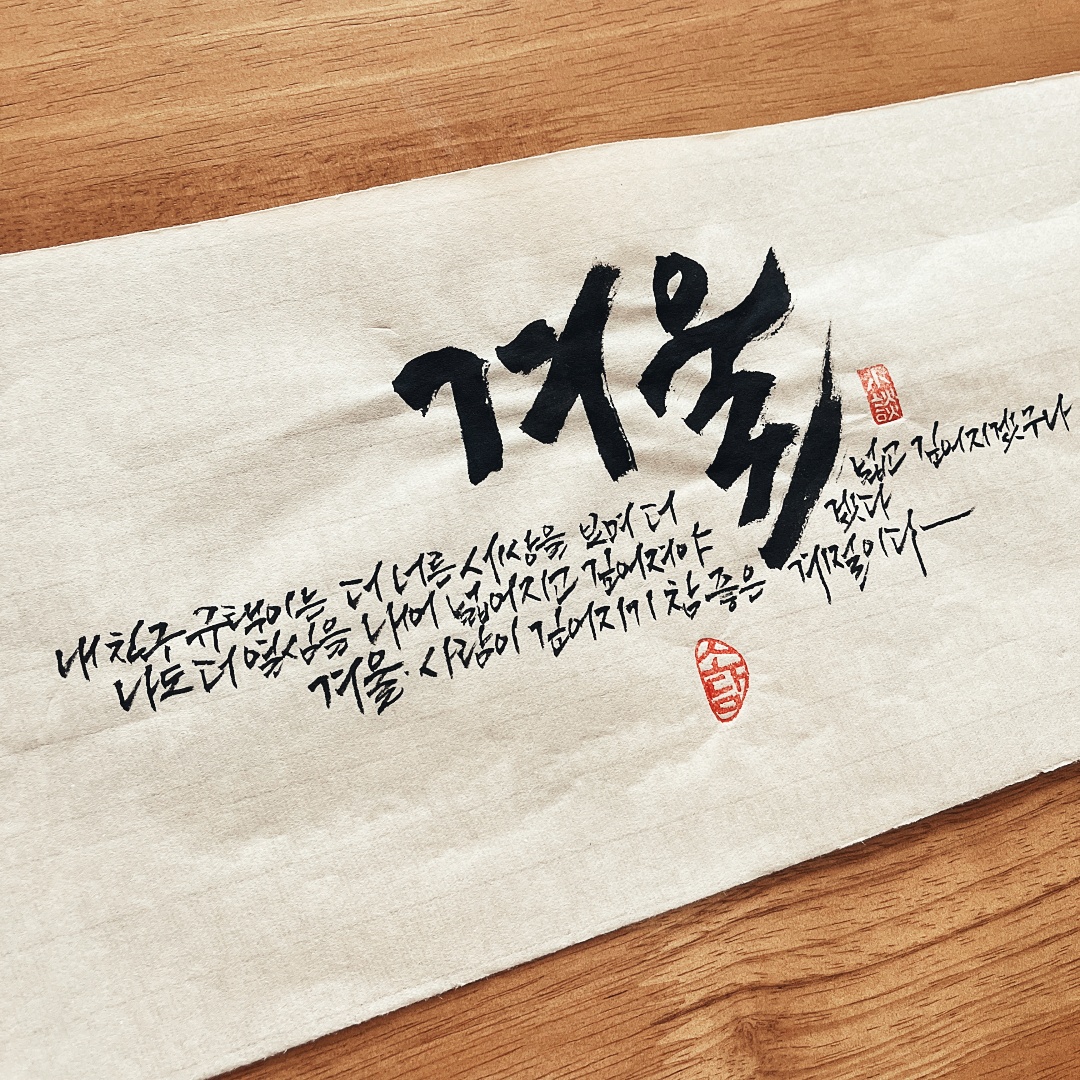 겨울
내 친구 규택이는 더 너른 세상을 보며 더 넓고 깊어지겠구나
나도 더 열심을 내어 넓어지고 깊어져야겠다
겨울. 사람이 깊어지기 참 좋은 계절이다
소담